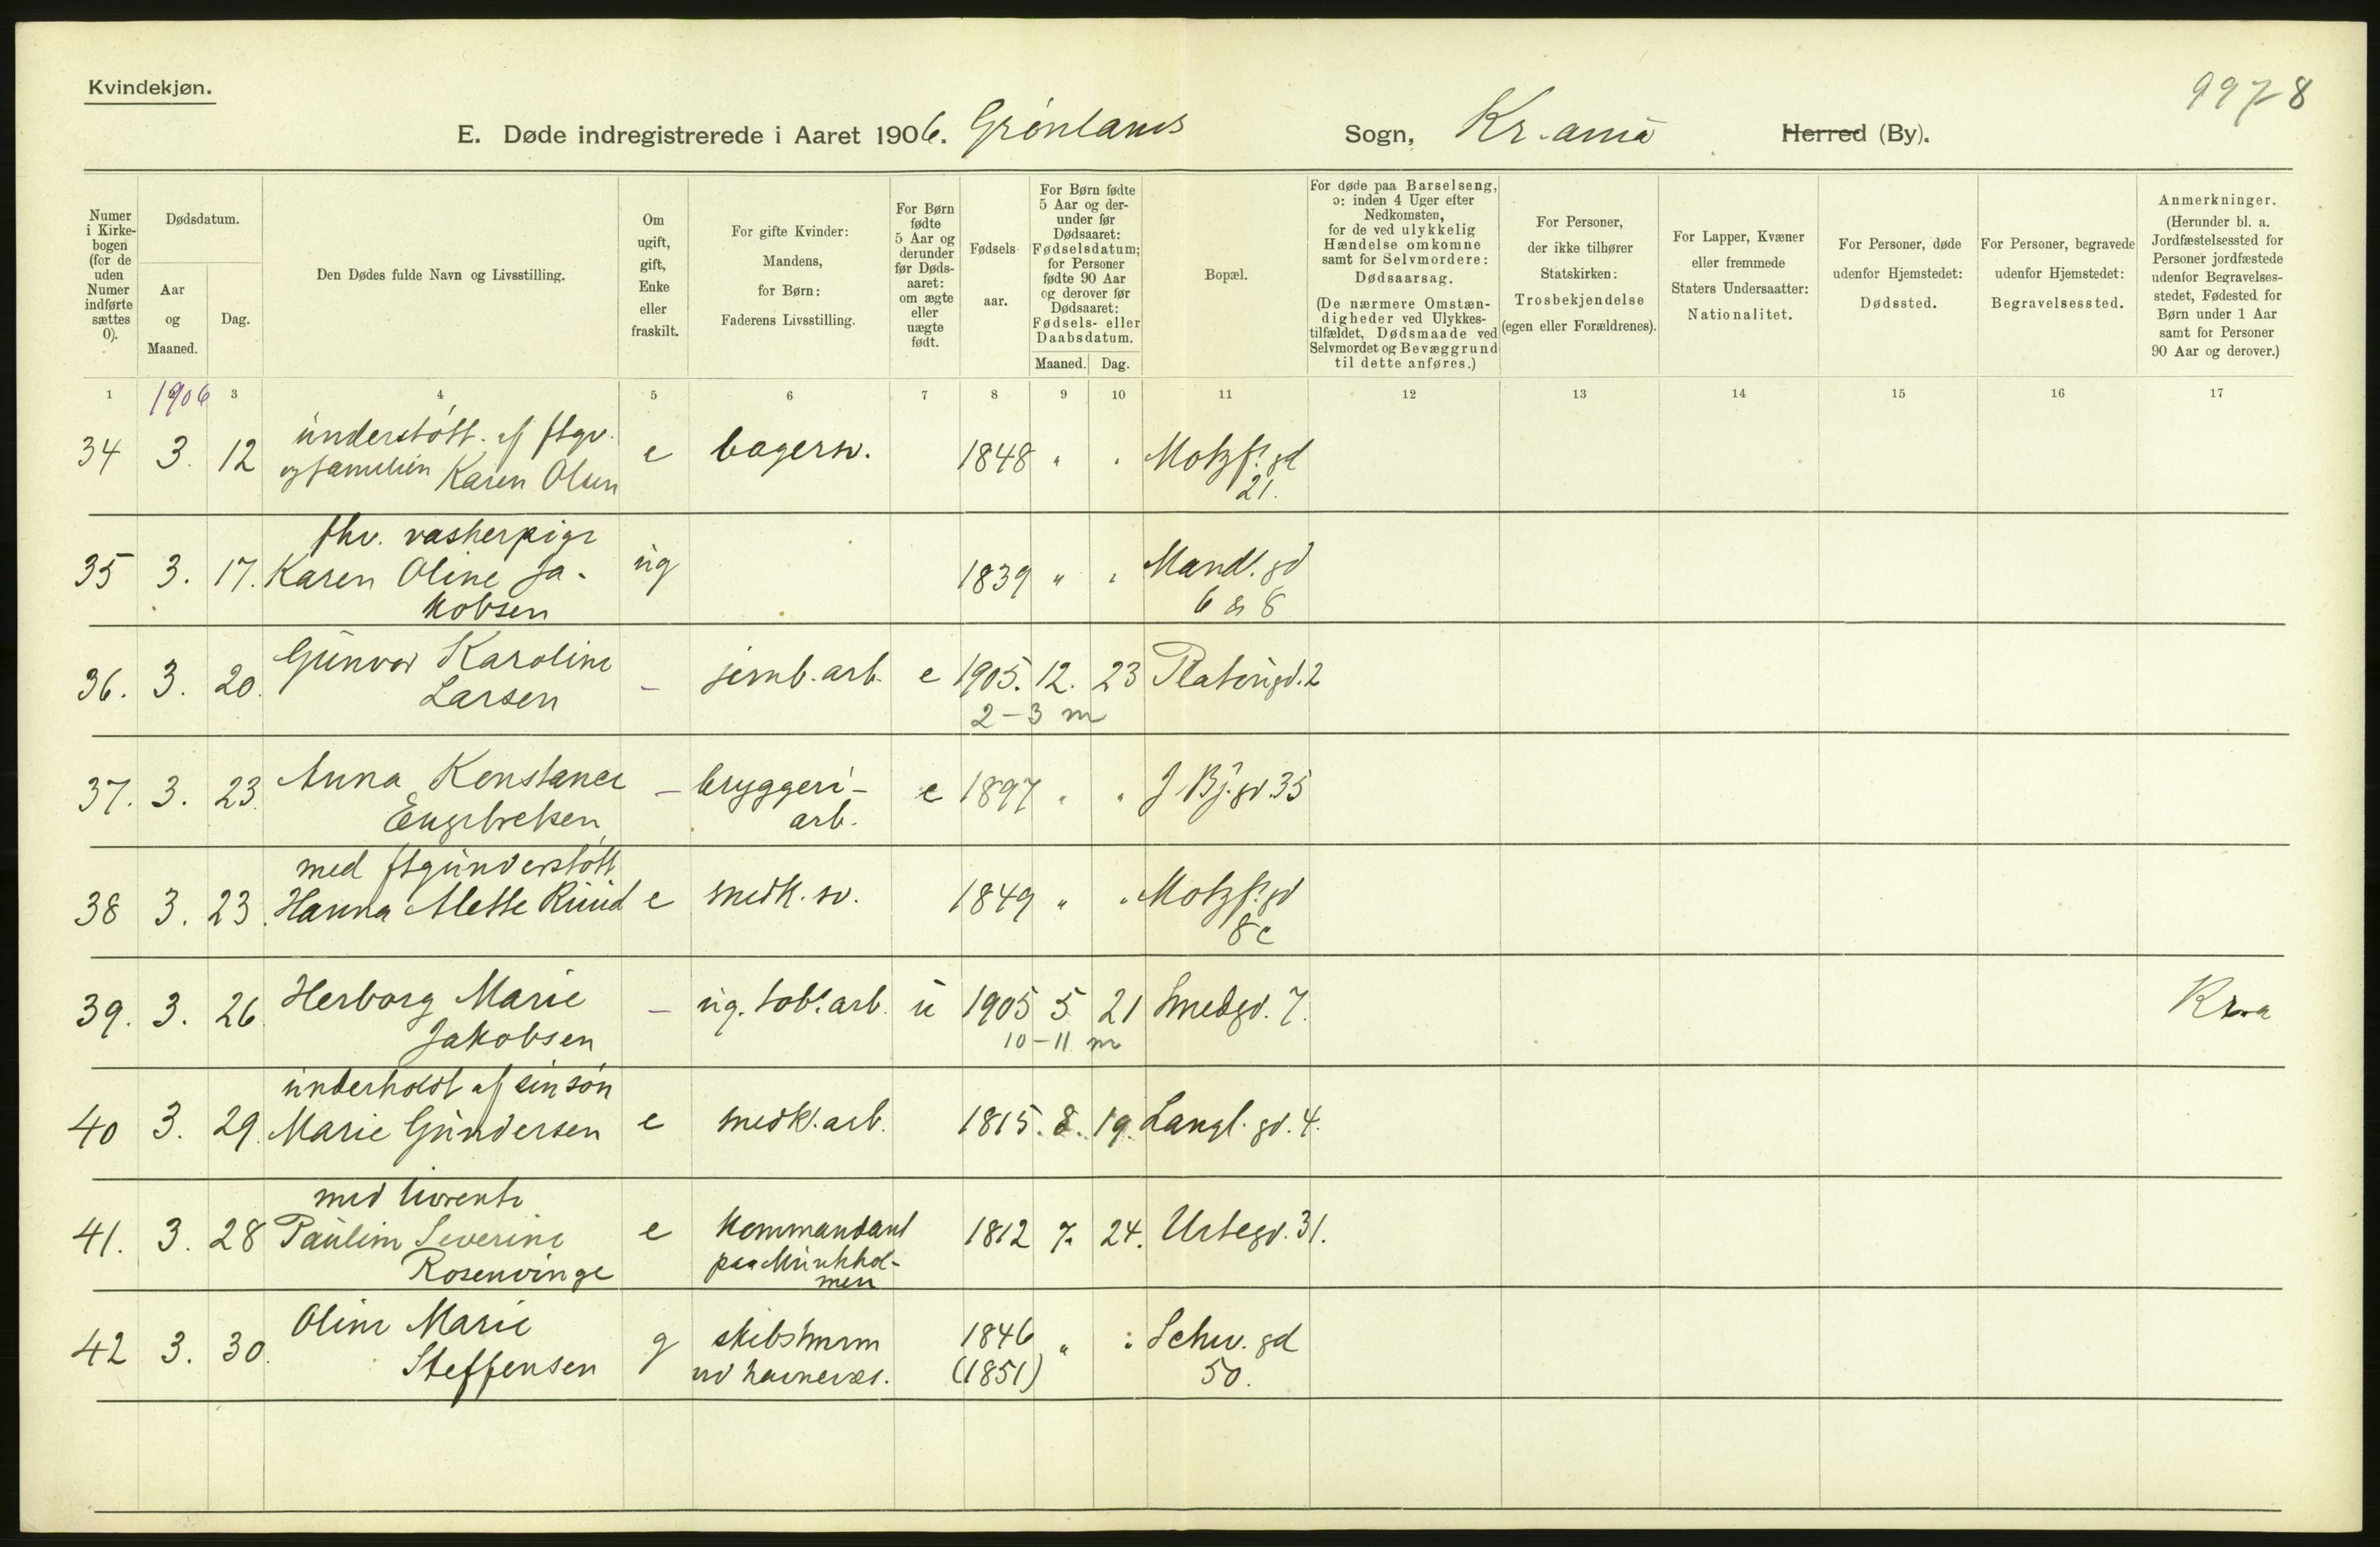 Kvindekjøn.
9978
E. Døde indregistrerede i Aaret 1906. Grønlands Sogn, Kr.ania Herred (By).
Numer i Kirkebogen (for de uden Numer indførte sættes 0).
Dødsdatum.
Aar og Maaned.
Dag.
Den Dødes fulde Navn og Livsstilling.
Om ugift, gift, Enke eller fraskilt.
For gifte Kvinder: Mandens, for Børn: Faderens Livsstilling.
For Børn fødte 5 Aar og derunder før Dødsaaret: om ægte eller uægte født.
Fødselsaar.
For Børn fødte 5 Aar og derunder før Dødsaaret: Fødselsdatum; for Personer fødte 90 Aar og derover før Dødsaaret: Fødsels- eller Daabsdatum.
Maaned. Dag.
Bopæl.
For døde paa Barselseng, ɔ: inden 4 Uger efter Nedkomsten, for de ved ulykkelig Hændelse omkomne samt for Selvmordere: Dødsaarsag.
(De nærmere Omstændigheder ved Ulykkestilfældet, Dødsmaade ved Selvmordet og Bevæggrund til dette anføres.)
For Personer, der ikke tilhører Statskirken: Trosbekjendelse (egen eller Forældrenes).
For Lapper, Kvæner eller fremmede Staters Undersaatter: Nationalitet.
For Personer, døde udenfor Hjemstedet: Dødssted.
For Personer, begravede udenfor Hjemstedet: Begravelsessted.
Anmerkninger.
(Herunder bl. a. Jordfæstelsessted for Personer jordfæstede udenfor Begravelsesstedet, Fødested for Børn under 1 Aar samt for Personer 90 Aar og derover.)
1 1906 3 4 5 6 7 8 9 10 11 12 13 14 15 16 17
understøtt. af ftgv.
34 3. 12 og familien Karen Olsen e bagersv. 1848 " " Motzf. gd
21.
fhv. vaskerpige
35 3. 17. Karen Oline Ja- ug 1839 " " Mandl. gd
kobsen 6 & 8
36. 3. 20. Gunvor Karoline – jernb. arb. e 1905. 12. 23 Platousgd. 2
Larsen 2–3 m
37. 3. 23. Anna Konstance – bryggeri- e 1897 " " J. Bj. gd. 35
Engebretsen arb.
med ftgunderstøtt
38 3. 23. Hanna Mette Ruud e snedk. sv. 1849 " " Motzf. gd
8c
39. 3. 26. Herborg Marie – ug. tob. arb. u 1905 5 21 Smedgd. 7. Kr.a
Jakobsen 10–11 m
underholdt af sin søn
40 3. 29. Marie Gundersen e snedk. arb. 1815. 8. 19. Langl. gd. 4.
med livrente
41. 3. 28 Pauline Severine e kommandant 1812 7. 24. Urtegd. 31.
Rosenvinge paa Munkhol-
men
42 3. 30. Oline Marie g skibstmrm 1846 " " Schw. gd
Steffensen ved havnevæs. (1851) 50.